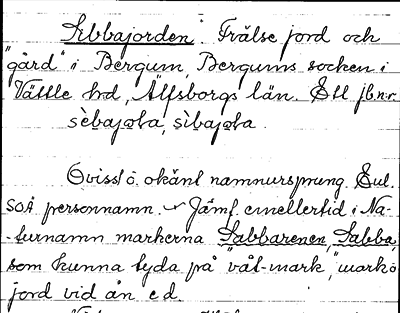 Sibbajorden. Frälse jord och
"gård" i Bergum, Bergums socken i
Vättle hd, Älfsborgs län. Ett jb.n:r.
sèbajoʟa, sìbajoʟa.
Ovisst o. okänt namnursprung. Eul.
som personnamn. Jämf. emellertid i Na-
turnamn markerna Sabbarenen, Sabba,
som kunna tyda på "våt-mark", "mark o
jord vid ån" e d.